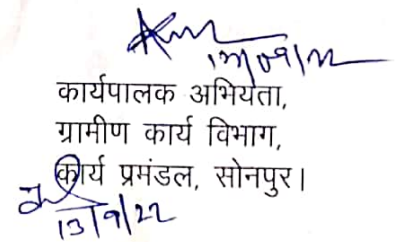 13/09/22
कार्यपालक अभियंता,
ग्रामीण कार्य विभाग,
कार्य प्रमंडल, सोनपुर।
13/9/22